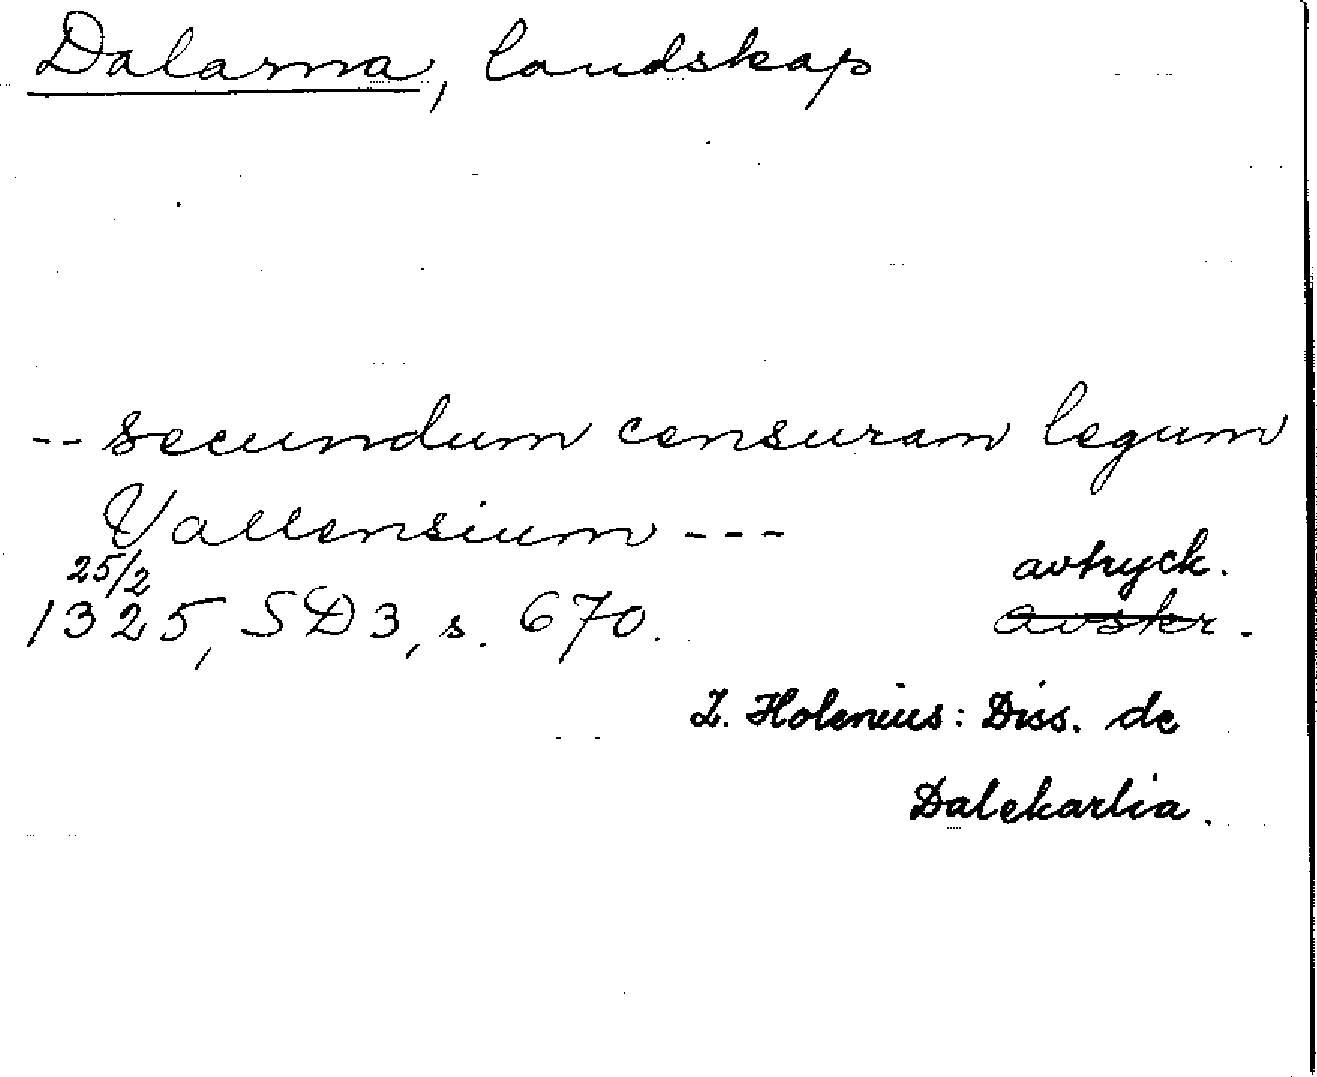 Dalarna, landskap
-- secundum censuram legum
Vallensium ---
25/2 avtryck.
1325, SD3, s. 670. avskr.
Z. Holenius: Diss. de
Dalekarlia.